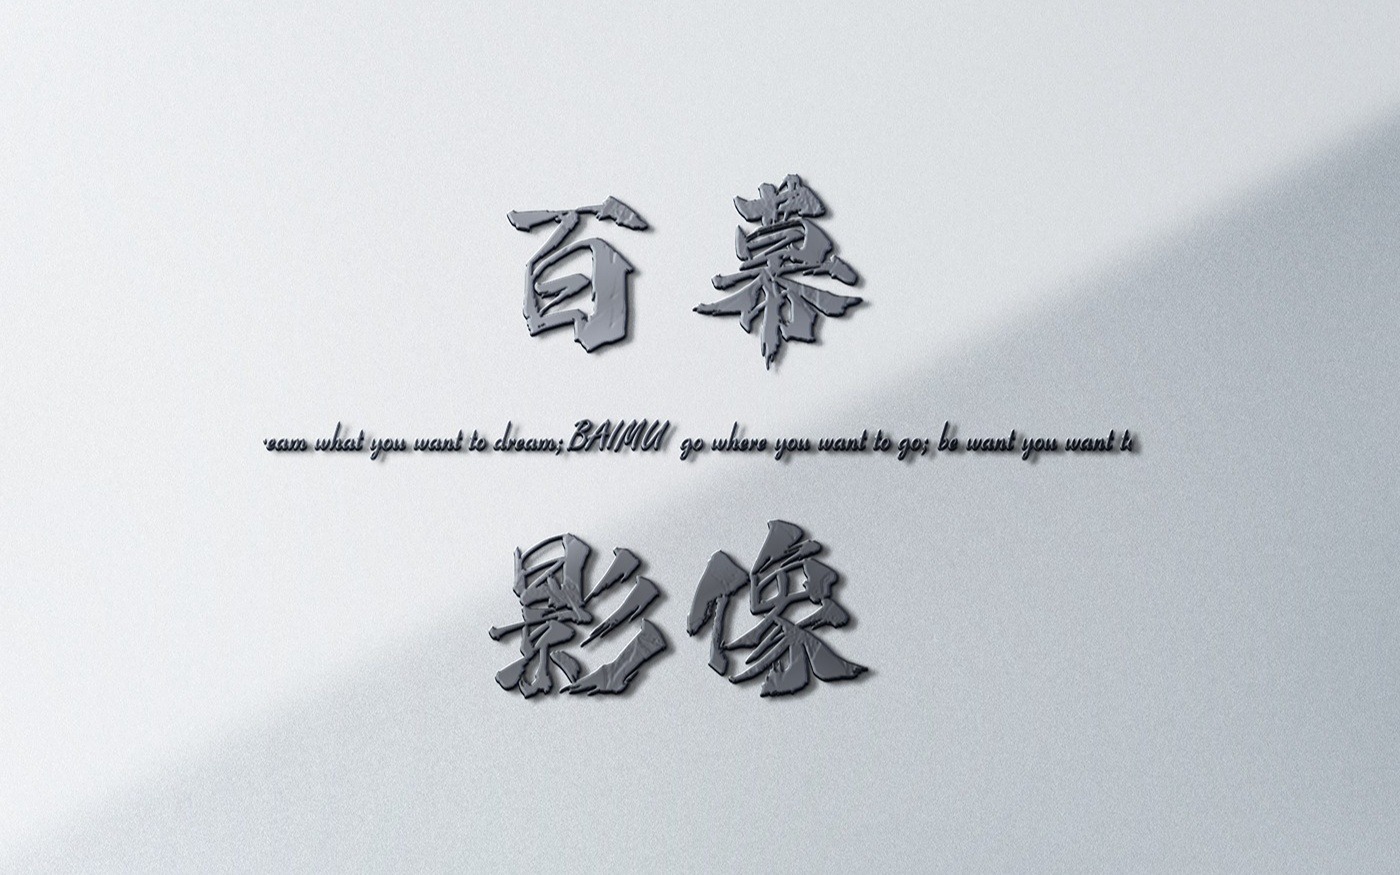 百幕
eam what you want to dream; BAIMU go where you want to go; be want you want t
影像